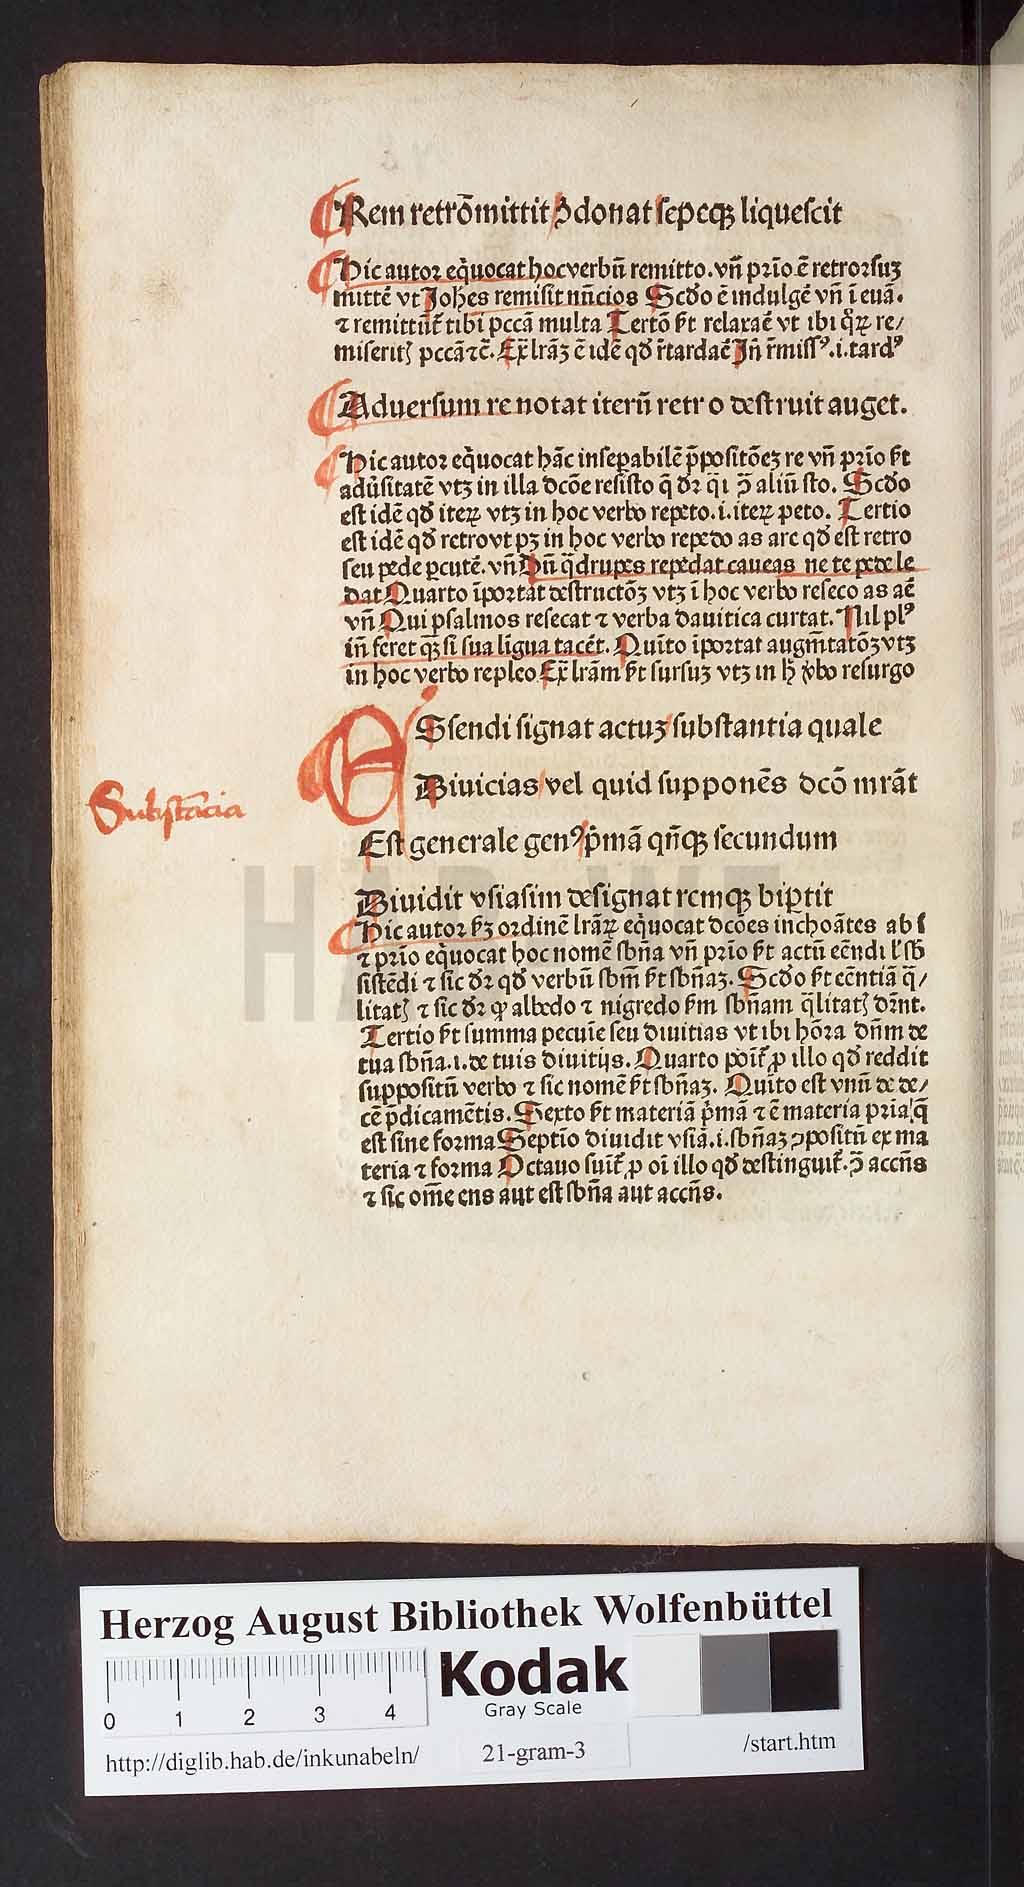 Rem retrōmittit ꝯdonat sepeqꝫ liquescit
Hic autor eq̄uocat hoc verbū remitto. vn̄ prīo ē retrorsuꝫ
mittē vt Johēs remisit nūcios Scd̄o ē indulgē vn̄ ī euā.
⁊ remittūt̄ tibi pccā multa Tertō ſꝫt relaxaē vt ibi qͦꝝ re/
miseritꝭ pccā ⁊c̄. Ex̄ lrāꝫ ē idē qd̄ r̄tardaē Jn̄ r̄missꝰ .i. tardꝰ
Aduersum re notat iterū retro destruit auget.
Hic autor eq̄uocat hāc insep̲abilē p̄positōeꝫ re vn̄ prīo ſꝫt
adūsitatē vtꝫ in illa dcōe resisto q̄ dr̄ q̄i ꝯ̄ aliū sto. Scd̄o
est idē qd̄ iterꝝ vtꝫ in hoc verbo repeto .i. iterꝝ peto. Tertio
est idē qd̄ retro vt pꝫ in hoc verbo repedo as are qd̄ est retro
seu pede ꝑcutē. vn̄ Dn̄ q̄drupes repedat caueas ne te pede le
dat Quarto īportat destructōꝫ vtꝫ ī hoc verbo reseco as aē
vn̄ Qui psalmos resecat ⁊ verba dauitica curtat. Nil plꝰ
in̄ feret qꝫ si sua lingua tacēt. Quīto īportat augm̄tatōꝫ vtꝫ
in hoc verbo repleo Ex̄ lrām ſꝫt sursuꝫ vtꝫ in ħ v̄bo resurgo
ESsendi signat actuꝫ substantia quale
Diuicias vel quid supponēs dcō mrāt
Substācia
Est generale genꝰ p̄mā qn̄qꝫ secundum
Diuidit vsiasim designat remqꝫ biꝑtit
Hic autor ſꝫꝫ ordinē lrāꝝ eq̄uocat dcōes inchoātes ab s
⁊ prīo eq̄uocat hoc nomē sbn̄a vn̄ prīo ſꝫt actū eēndi lꝰ sb̄
sistēdi ⁊ sic dr̄ qd̄ verbū sbm̄ ſꝫt sbn̄aꝫ. Scd̄o ſꝫt eēntiā q̄/
litatꝭ ⁊ sic dr̄ ꝙ albedo ⁊ nigredo ſꝫm sbn̄am q̄litatꝭ dr̄nt.
Tertio ſꝫt summa pecunīe seu diuitias vt ibi hōra dn̄m de
tua sbn̄a .i. de tuis diuitijs. Quarto poīt̄ ꝓ illo qd̄ reddit
suppositū verbo ⁊ sic nomē ſꝫt sbn̄aꝫ. Quīto est vnū de de/
cē p̄dicamētis. Sexto ſꝫt materiā p̄mā ⁊ ē materia pria q̄
est sine forma Septīo diuidit vsiā .i. sbn̄aꝫ ꝯpositū ex ma
teria ⁊ forma Octauo suīt̄ ꝓ oī illo qd̄ destinguit̄. ꝯ̄ accn̄s
⁊ sic om̄e ens aut est sbn̄a aut accn̄s.
HAB WF
Herzog August Bibliothek Wolfenbüttel
0 1 2 3 4
Kodak
Gray Scale
http://diglib.hab.de/inkunabeln/
21-gram-3
/start.htm